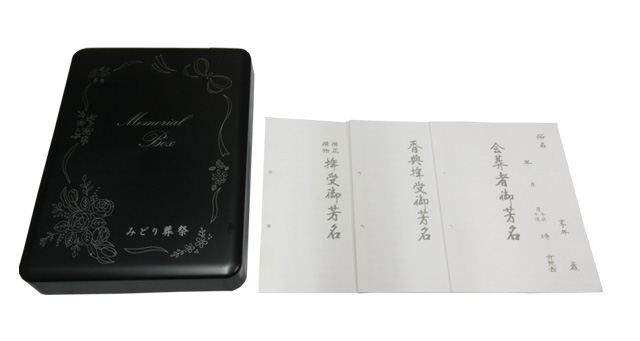 Memorial
Box
みどり葬祭
俗名
享年
会葬者御芳名
香典拝受御芳名
供花
供物
拝受御芳名